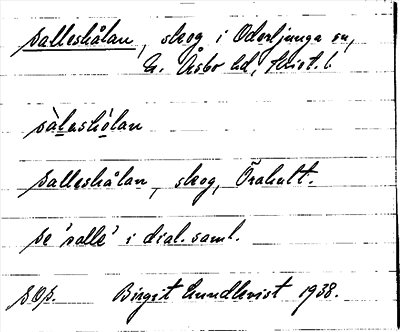 Salleshålan, skog i Oderljunga sn,
N. Åsbo hd, Krist. l.
sàlashólan
Salleshålan, skog, Örahult.
Se 'salle' i dial. saml.
SOÅ. Birgit Lundkvist 1938.